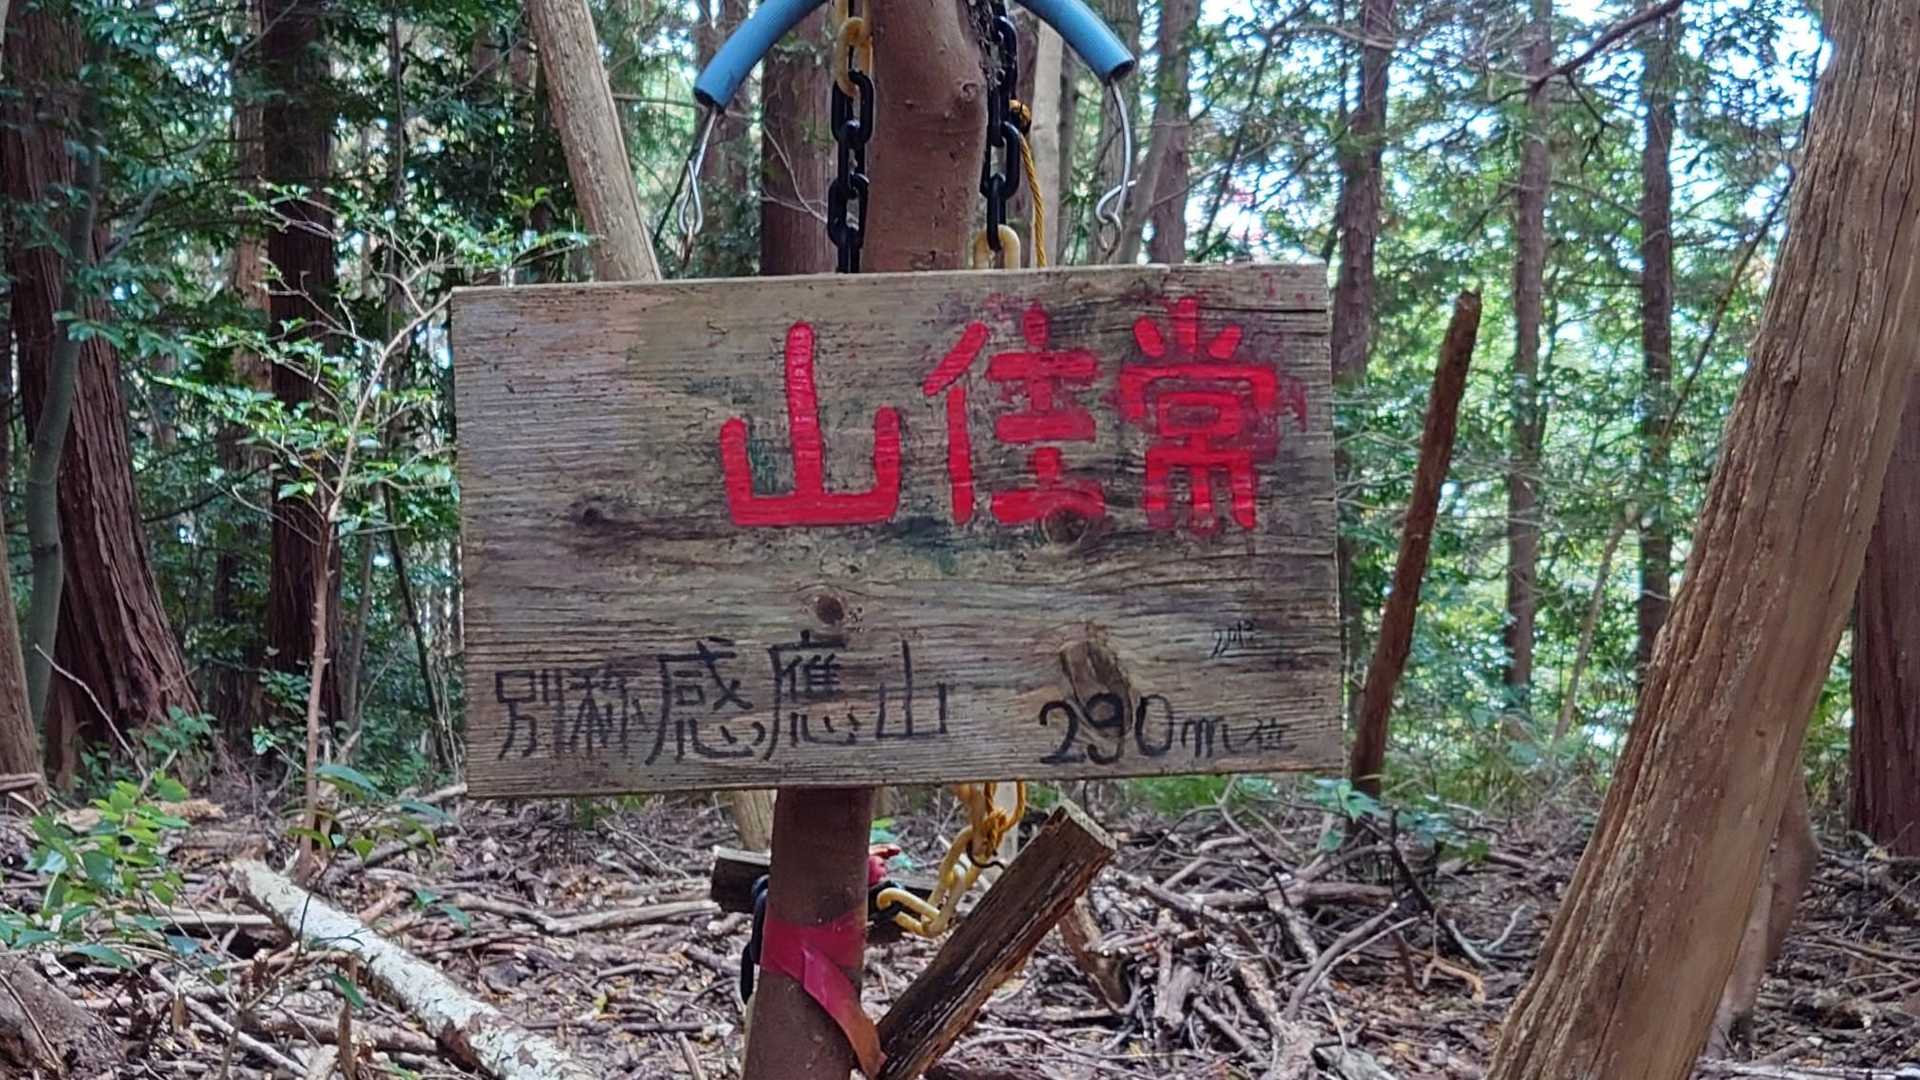 常住山
別称感應山 290m位